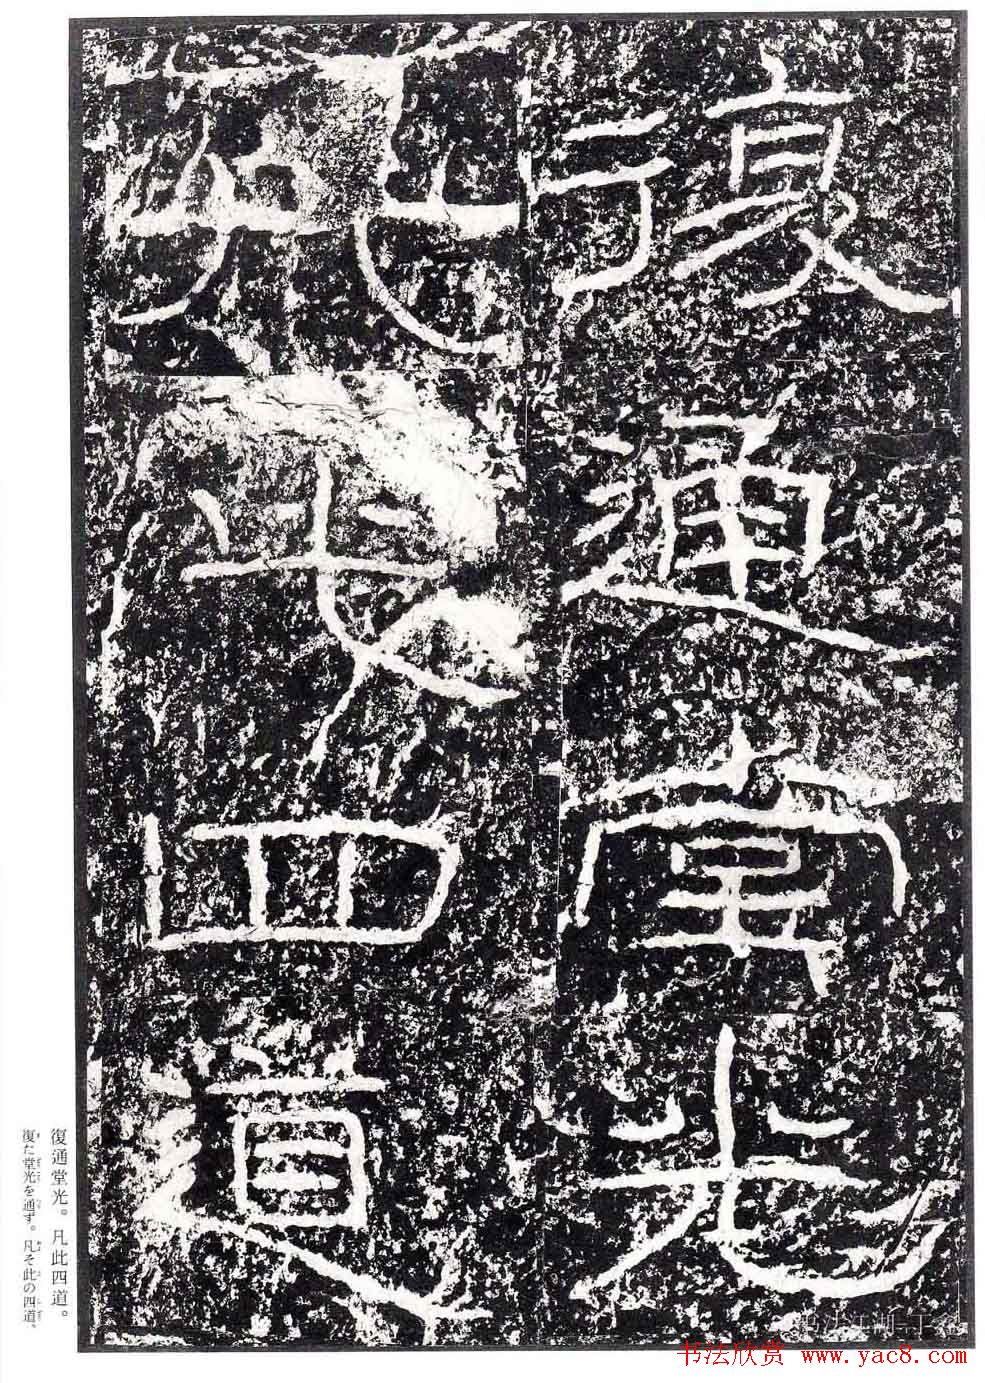 復通堂光
凡此四道
復通堂光。凡此四道。
復た堂光を通ず。凡そ此の四道、
书法欣赏 www.yac8.com